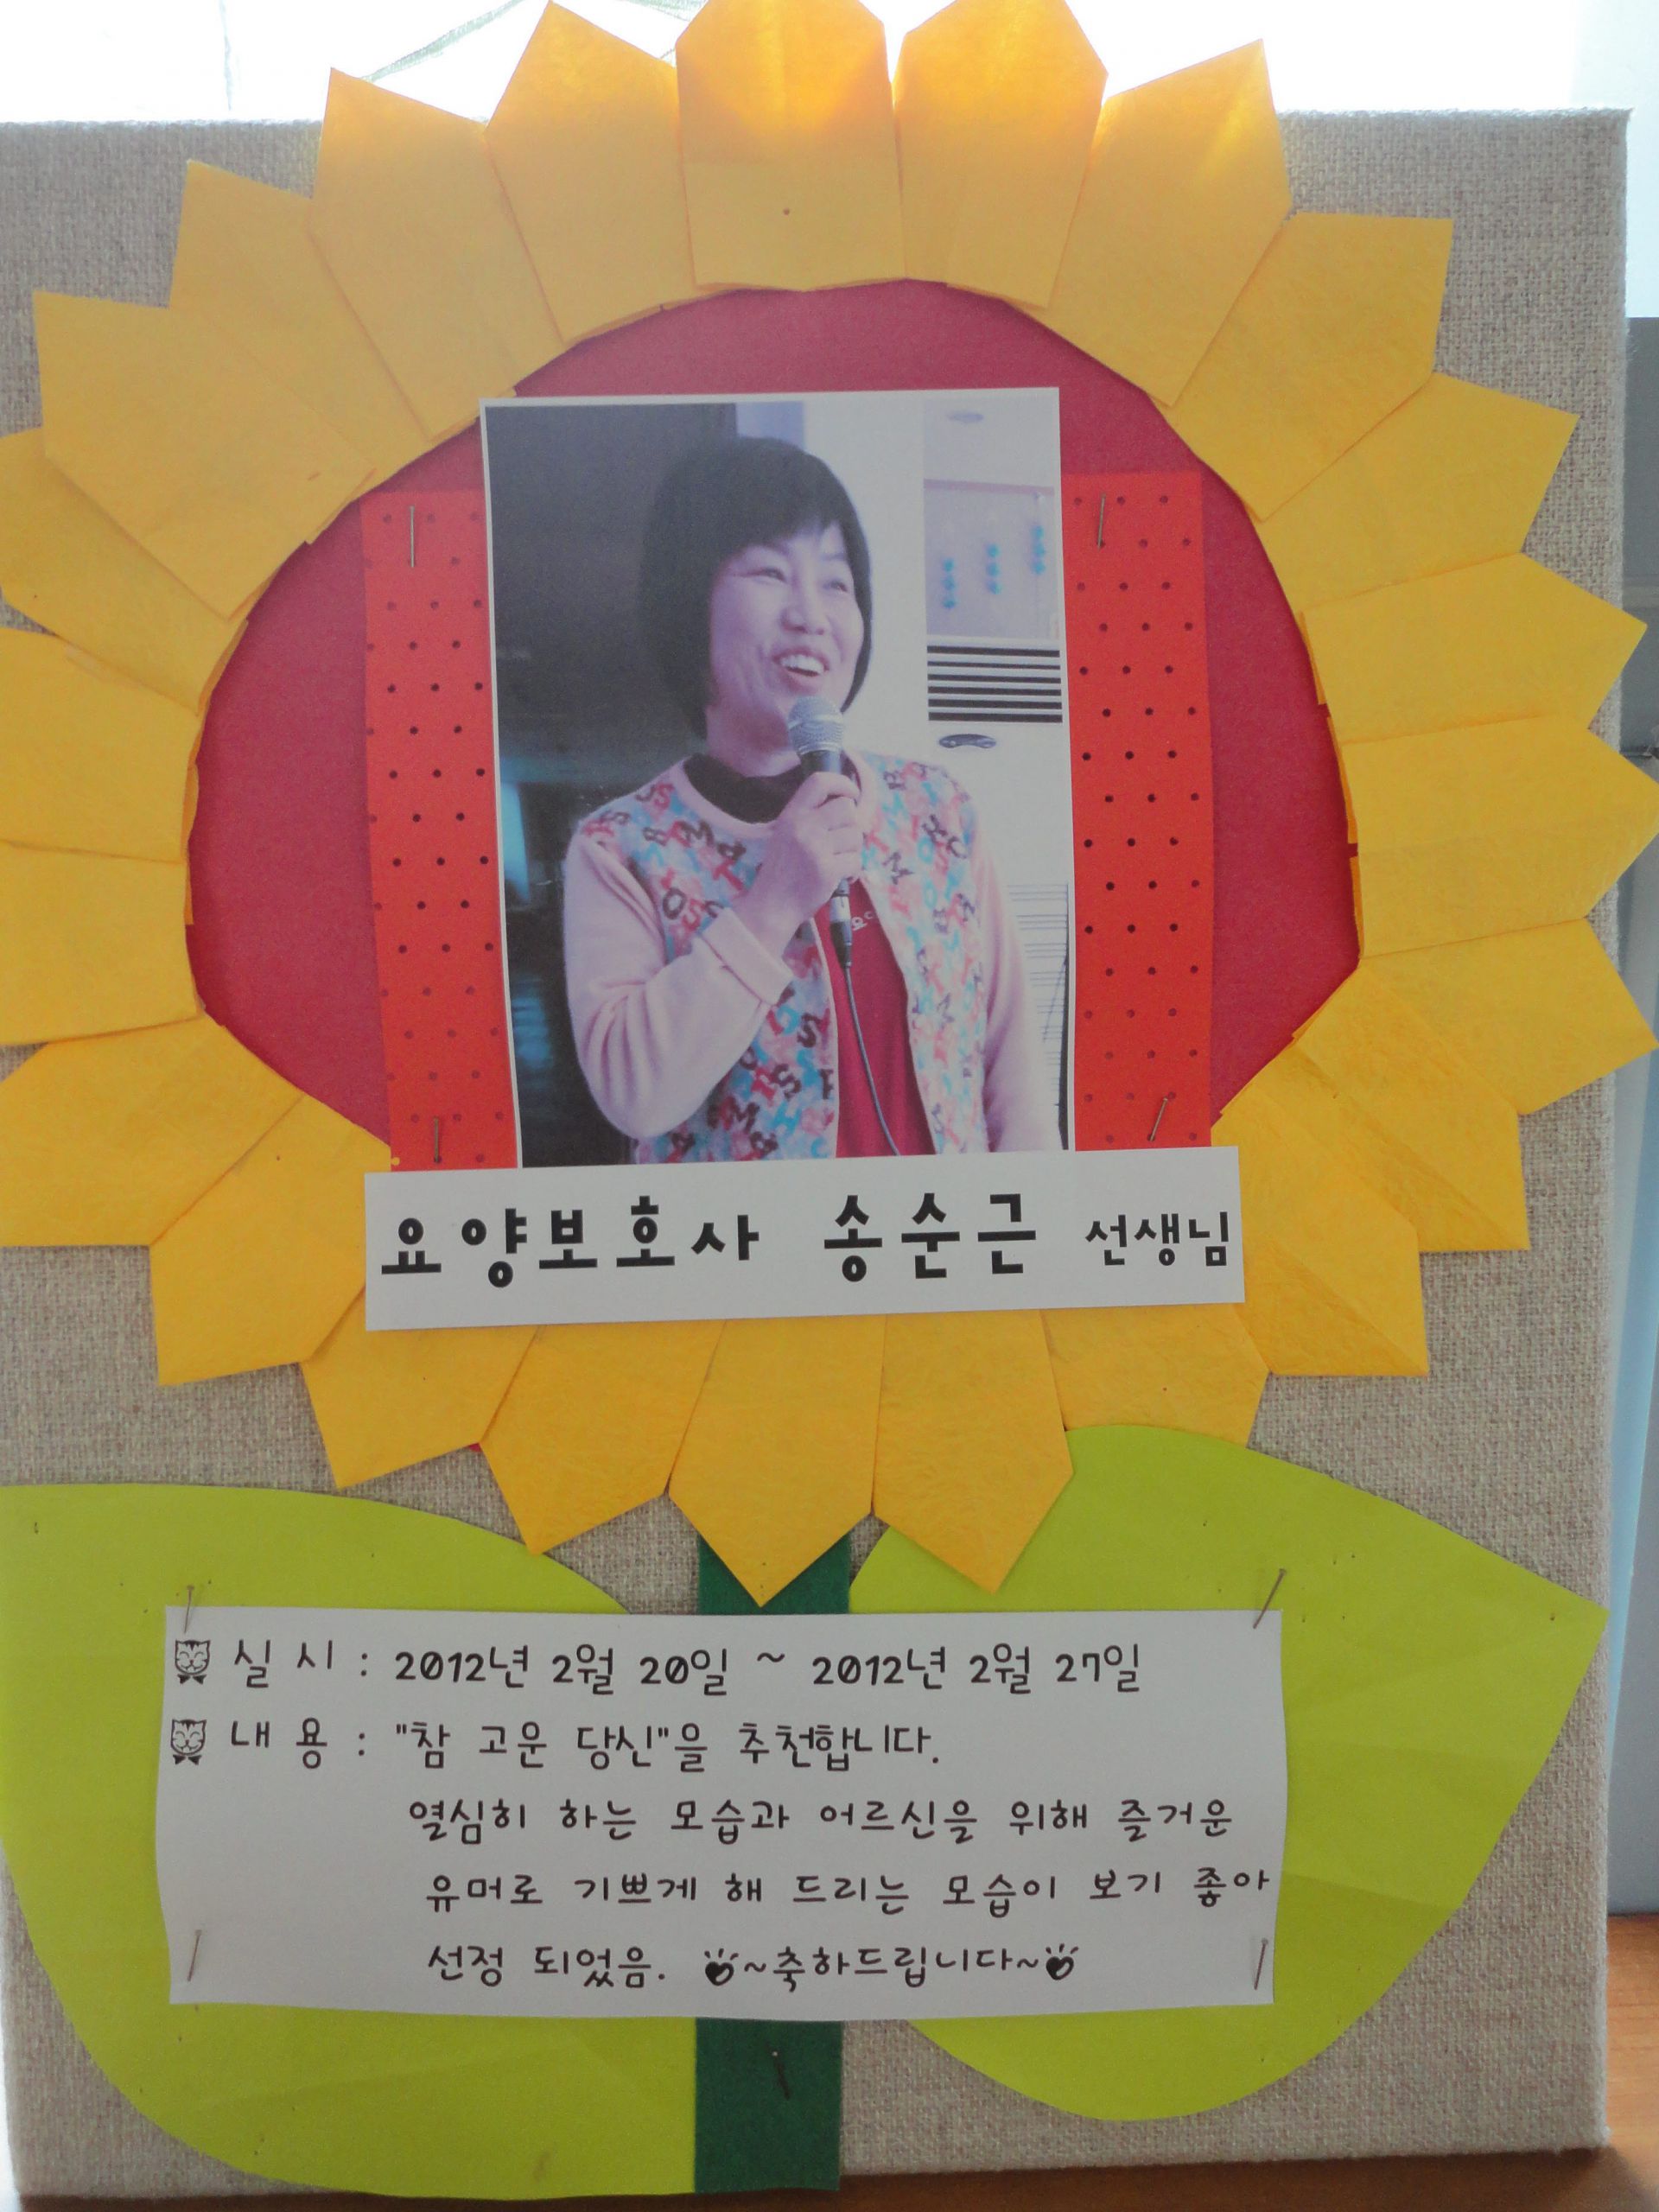 요양보호사 송순근 선생님
실 시 : 2012년 2월 20일 ~ 2012년 2월 27일
내 용 : "참 고운 당신"을 추천합니다.
열심히 하는 모습과 어르신을 위해 즐거운
유머로 기쁘게 해 드리는 모습이 보기 좋아
선정 되었음. ~축하드립니다~